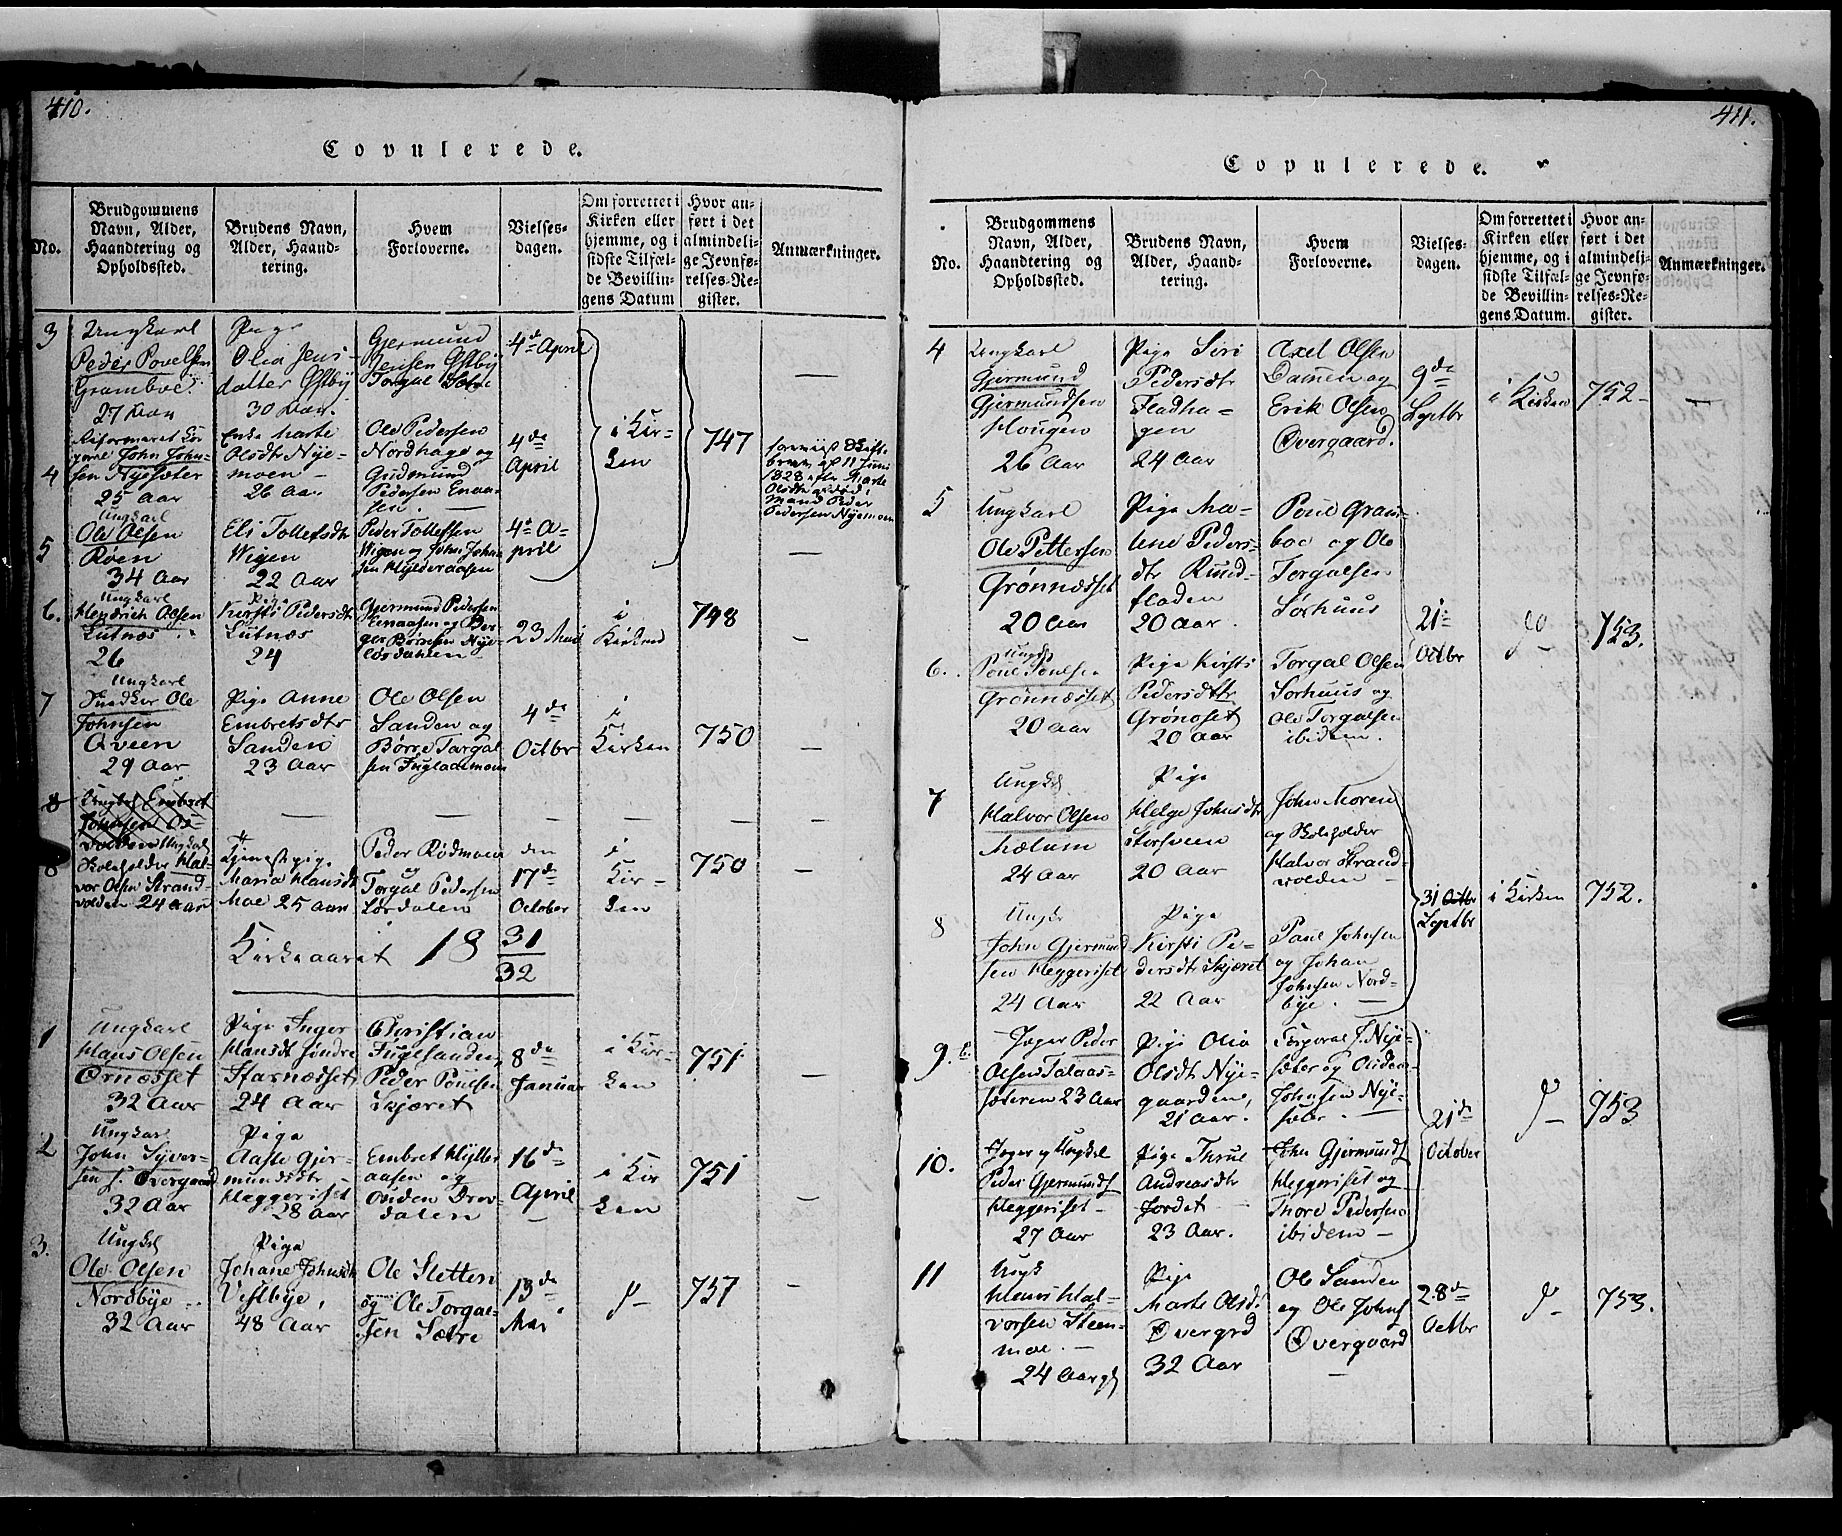 410.
Copulerede.
No.
Brudgommens
Navn, Alder,
Haandtering og
Opholdssted.
Brudens Navn,
Alder, Haand-
tering.
Hvem
Forloverne.
Vielses-
dagen.
Om forrettet i
Kirken eller
hjemme, og i
sidste Tilfæl-
de Bevillin-
gens Datum
Hvor an-
ført i det
almindeli-
ge Jevnfø-
relses-Re-
gister.
Anmærkninger.
3
Ungkarl
Peder Povelsen
Gramboe.
27 Aar
Pige
Olia Jens-
datter Østby
30 Aar.
Gjermund
Jensen Østby
Torgal Sætre
4de April
4
Reformeret
John John-
sen Nysæter
25 Aar
Enke Marte
Olsdtr Nye-
moen
26 Aar
Ole Pedersen
Nordhage og
Gudmund
Pedersen Enaa-
sen.
4de
April
i Kir-
ken
747
foreviist Skifte-
brev af 11 Juni
1828 efter Marte
Olsdtr
Mand Peder
Pedersen Nyemoen
5
Ungkarl
Ole Olsen
Roen
34 Aar
Eli Tollefsdtr
Wigen
22 Aar
Peder Tollefsen
Wigen og John John-
sen Hylderaasen
4de A-
pril
6.
Ungkarl
Hendrich Olsen
Lutnæs
26
Pige
Kirsti Pedersdtr
Lutnæs
24
Gjermund Pedersen
Enaasen og Ber-
ger Børresen Nye-
lørdahlen
23 Mai
i
Kirken
748
7
Ungkarl
Snedker Ole
Johnsen
Qveen
29 Aar
Pige Anne
Embretsdtr
Sanden
23 Aar
Ole Olsen
Sanden og
Børre Torgal
sen Fuglaasmoen
4de
Octbr
i
Kirken
750
8
Ungkl Embret
Johnsen
8
Ungkl
Skoleholder Hal-
vor Olsen Strand-
volden 24 Aar
Tjenestpige
Maria Hansdt
Moe 25 aar
Peder Rødmoen
og
Torgal Pedersen
Lørdalen
den
17de
October
i
Kir-
ken
750
Kirkeaaret 18 31/32
1
Ungkarl
Hans Olsen
Ørnæsset
32 Aar
Pige Inger
Hansdt Søndre
Starnæsset
24 Aar
Christian
Fuglsanden,
Peder Poulsen
Skjæret
8de
Januar
i Kir-
ken
751
2
Ungkarl
John Syver-
sen S. Overgaard
32 Aar
Pige
Aaste Gjer-
mundsdtr
Heggeriset
28 Aar
Embret Hylleraasen og
Ouden Drev-
dalen
16de
April
i Kir
ken
751
3.
Ungkl
Ole Olsen
Nordbye
32 Aar
Pige
Johane Johnsdtr
Vestbye,
48 Aar
Ole Sletten
og Ole Torgal-
sen Sætre
13de
Mai
751
411.
Copulerede.
No.
Brudgommens
Navn, Alder,
Haandtering og
Opholdssted.
Brudens Navn,
Alder, Haand-
tering.
Hvem
Forloverne.
Vielses-
dagen.
Om forrettet i
Kirken eller
hjemme, og i
sidste Tilfæl-
de Bevillin-
gens Datum.
Hvor an-
ført i det
almindeli-
ge Jevnfø-
relses-Re-
gister.
Anmærkninger.
4
Ungkarl
Gjermund
Gjermundsen
Haugen
26 Aar
Pige Siri
Pedersdtr
Fladha-
gen
24 Aar
Axel Olsen
Damen og
Erik Olsen
Øvergaard.
9de
Septbr
i Kirken
752
5
Ungkarl
Ole Pettersen
Grønnæsset
20 Aar
Pige Ma-
lene Peders-
dtr Rund-
fladen
20 Aar.
Poul Gram-
boe og Ole
Torgalsen
Sørhuus
21de
Octbr
do
753.
6.
Ungkl
Poul Poulsen
Grønnæsset
20 Aar
Pige Kirsti
Pedersdtr
Grønoset
20 Aar
Torgal Olsen
Sørhuus og
Ole Torgalsen
ibidem.
7
Ungkl
Halvor Olsen
Mælum
24 Aar
Pige
Helge Johnsdtr
Storsveen
20 Aar
John Moren
og Skoleholder
Halvor Strand-
volden
31 Octbr
Septbr
i Kirken
752.
8
Ungkl
John Gjermund
sen Heggeriset
24 Aar
Pige
Kirsti Pe-
dersdtr Skjæret
22 Aar
Paul Johnsen
og Johan
Johnsen Nord-
bye.
9.
Jæger Peder
Olsen Talaas-
sæteren 23 Aar
Pige Olia
Olsdt Nye-
gaarden,
21 Aar.
J. Nye-
sæter og Ouden
Johnsen Nye-
sæter
21de
October
753
10.
Jæger og Ungkl
Peder Gjermunds
Heggeriset
27 Aar
Pige Thrul
Andreasdtr
Jordet
23 Aar.
John Gjermunds
Heggeriset og
Thore Pedersen
ibidem
11
Ungk
Hans Hal-
vorsen Steen-
moe.
24 Aar gl
Pige
Marte Olsd
Øvergrd
32 Aar
Ole Sanden
og Ole Johns
Øvergaard
28de
Octbr
753.